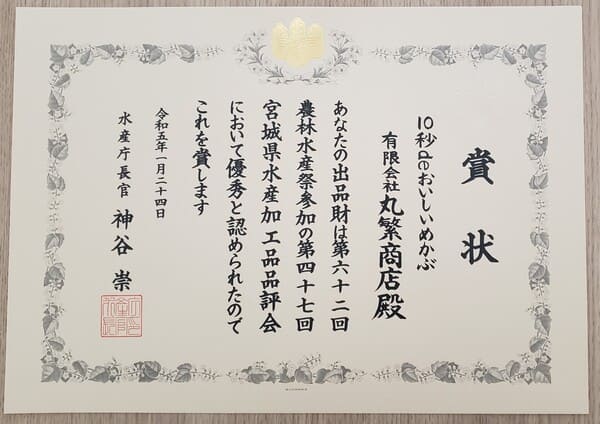 賞状
10秒deおいしいめかぶ
有限会社 丸繁商店殿
あなたの出品財は第六十二回
農林水産祭参加の第四十七回
宮城県水産加工品品評会
において優秀と認められたので
これを賞します
令和五年一月二十四日
水産庁長官 神谷 崇